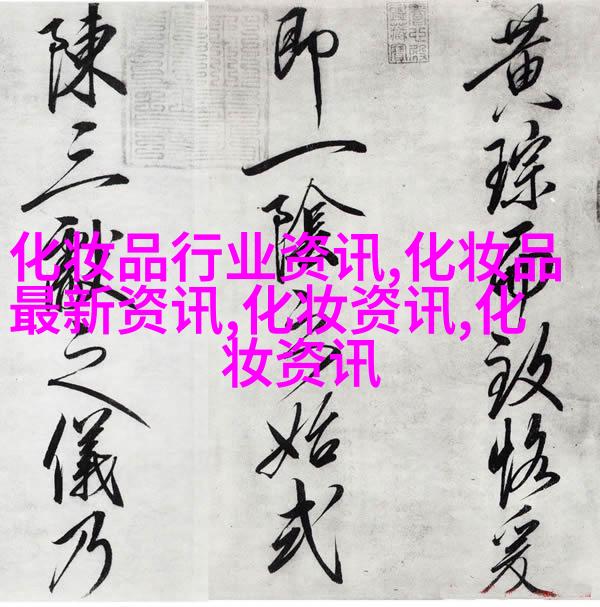 化妆品行业资讯,化妆品
最新资讯,化妆资讯,化
妆资讯
黄琮而致恪爰
即一陰之始式
陳三獻之儀乃